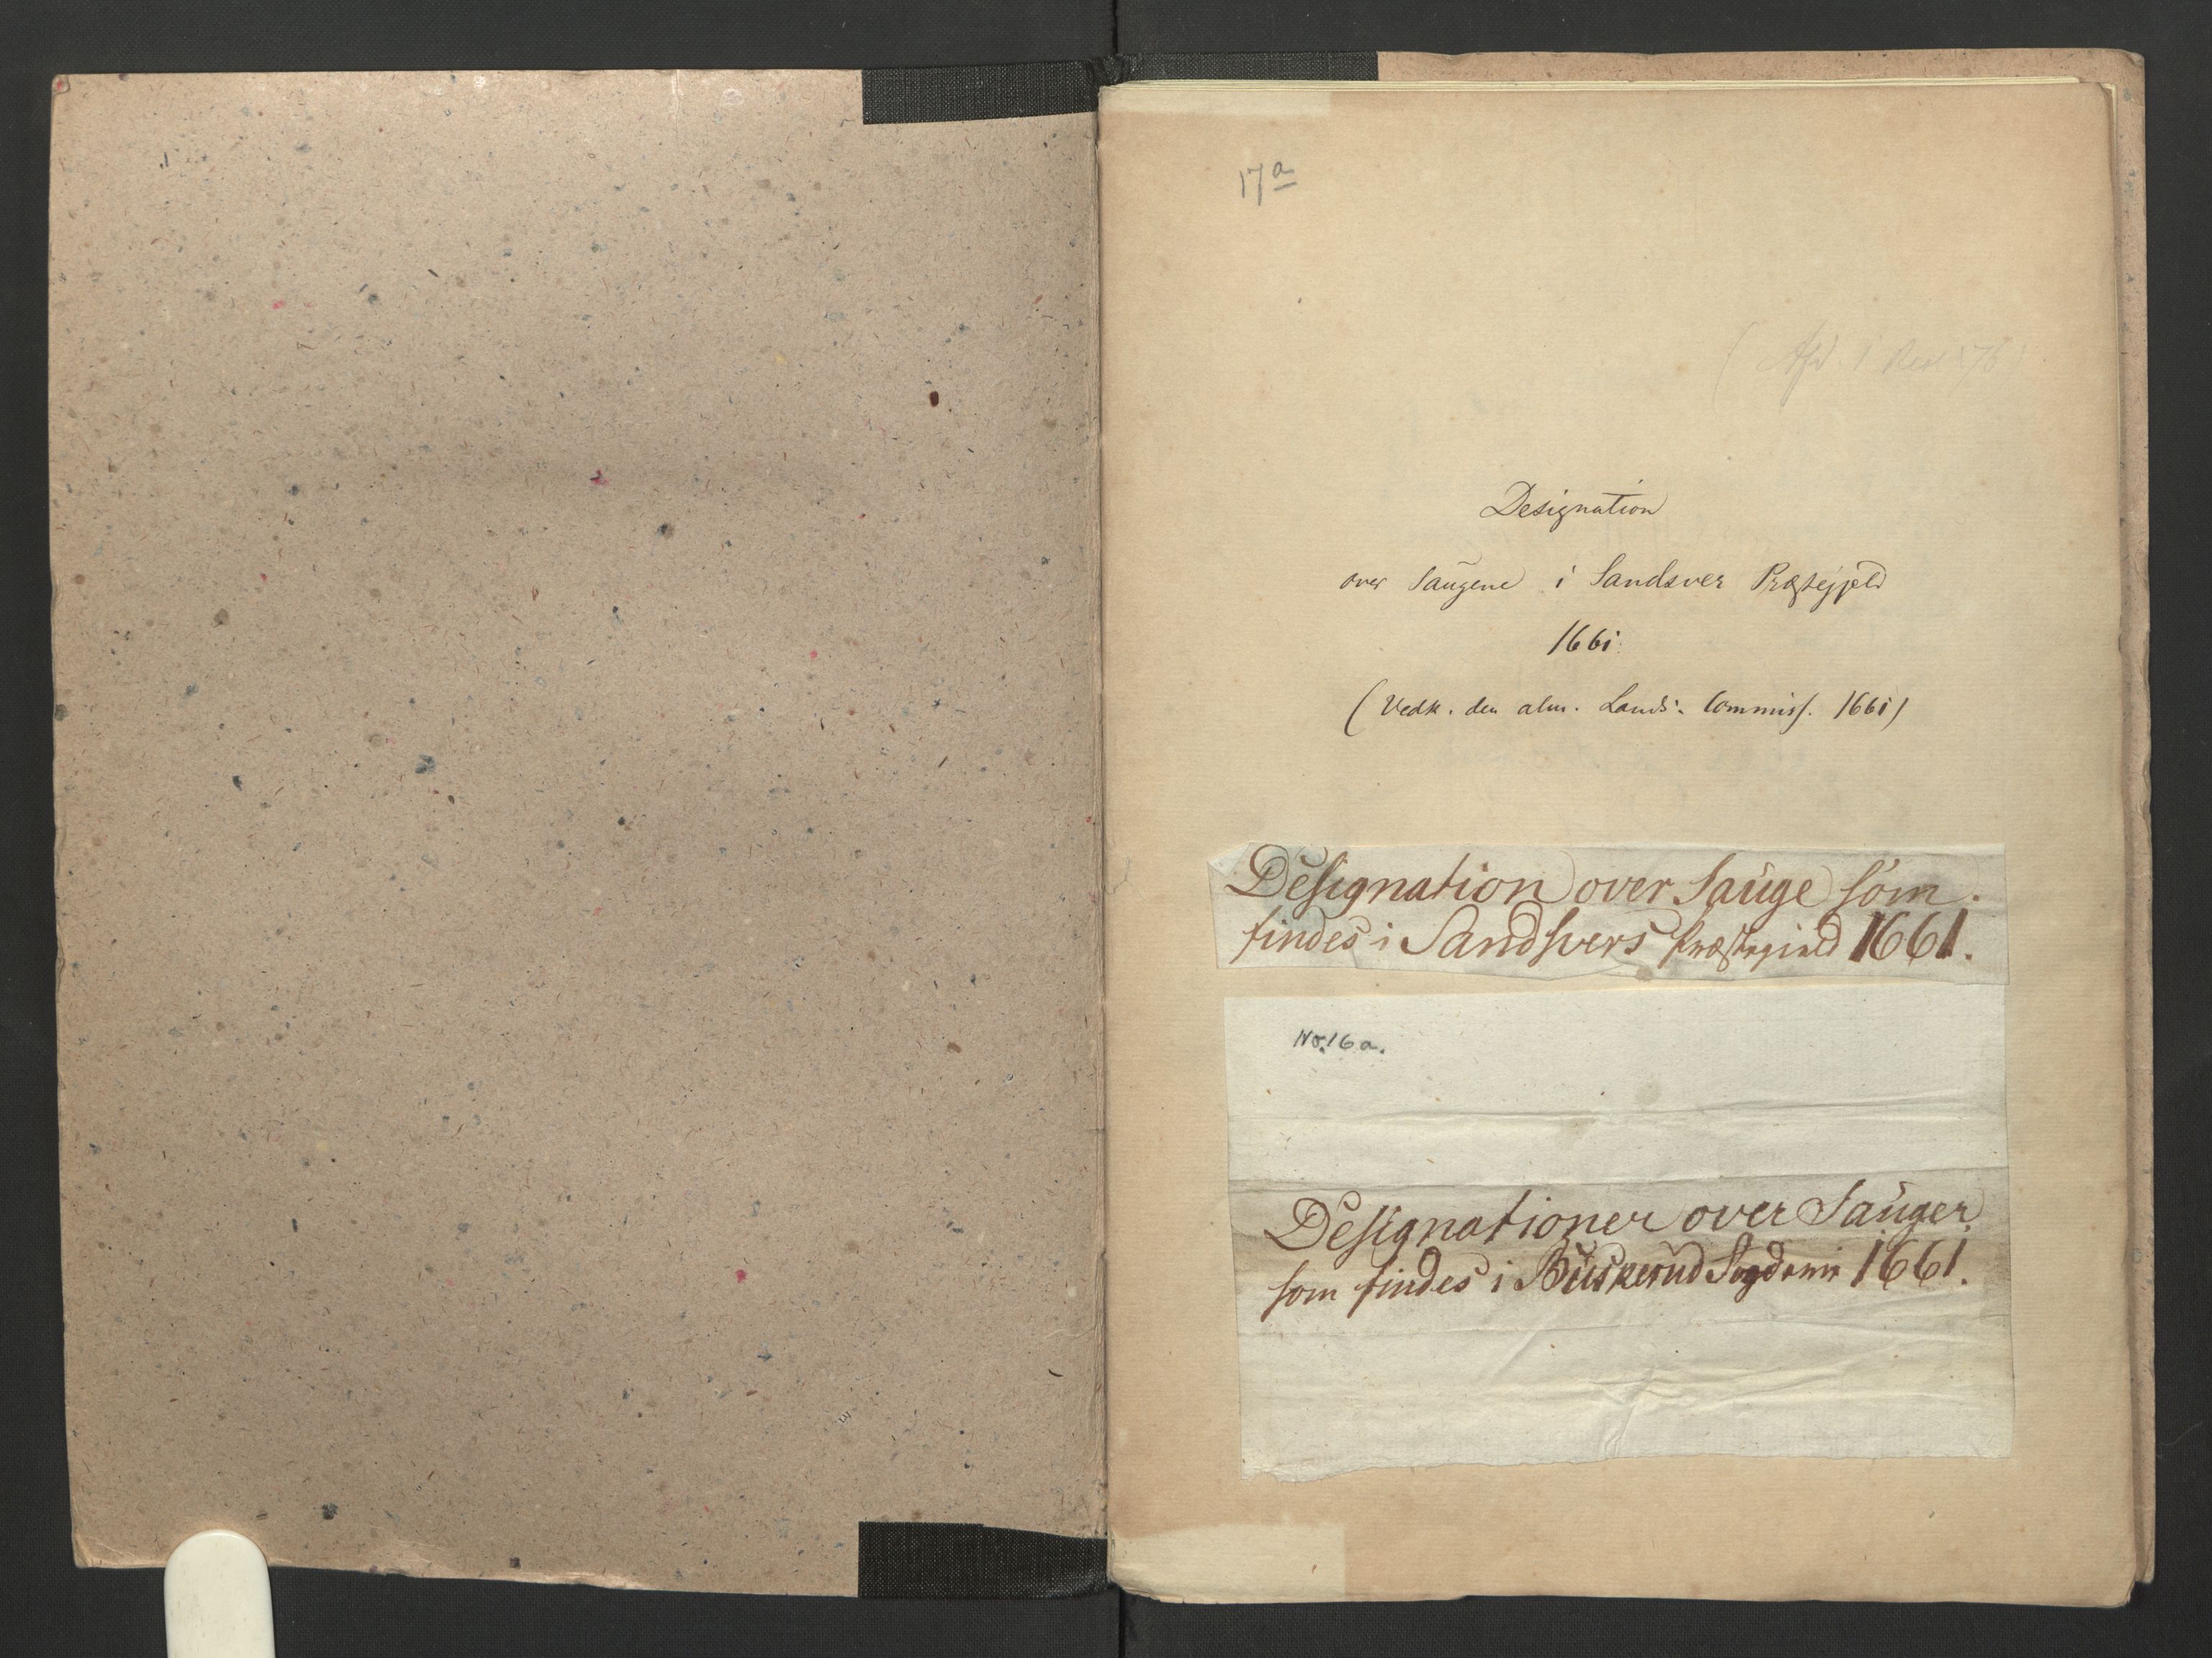 17a
Designation
over Saugene i Sandsver Præstegjeld
1661.
(Vedk. den alm. Lands-Commiss. 1661)
Designation over Sauge som
findes i Sandsvers Præstegield 1661.
No. 16 a.
Designationer over Sauger
som findes i Buskerud Fogderie 1661.